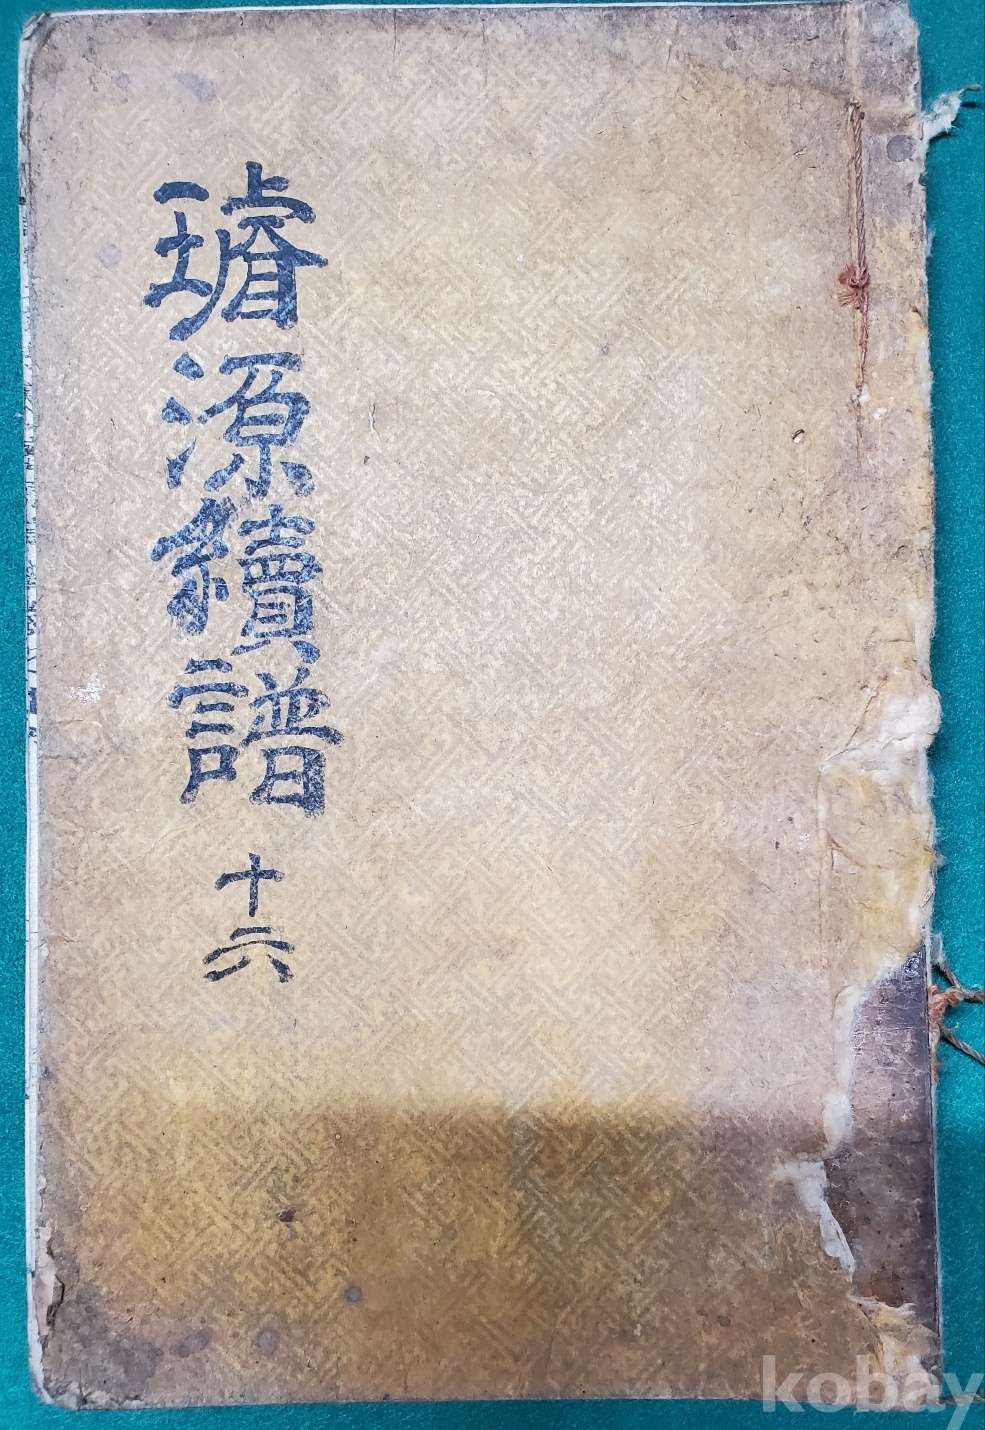 璿源續譜
十六
kobay